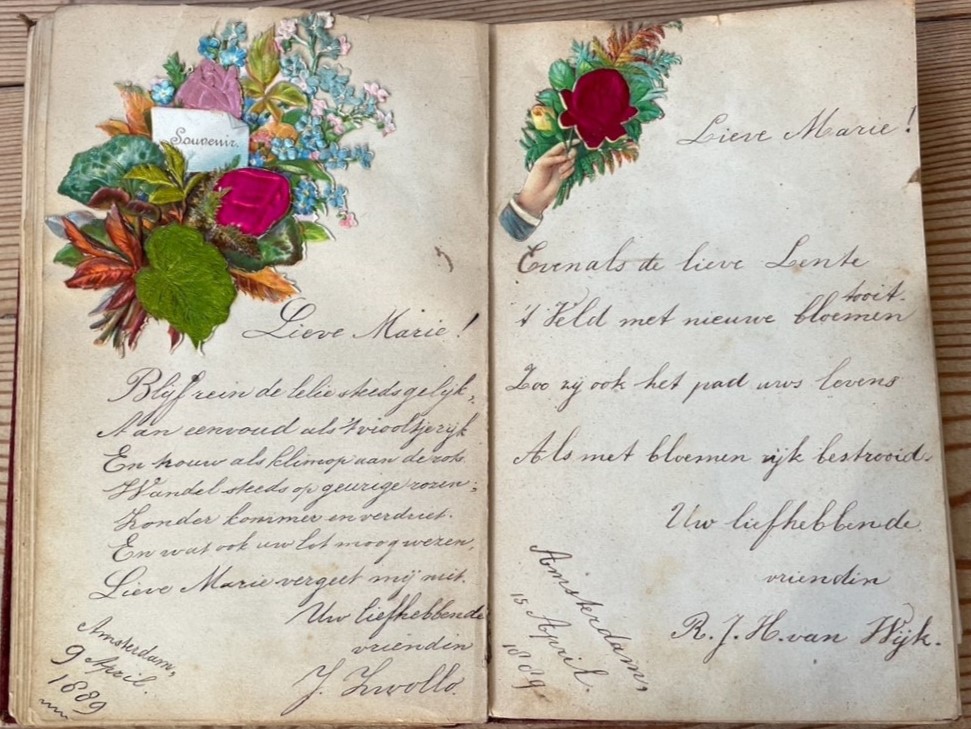 Souvenir.
Lieve Marie!
Blijf rein de lelie steeds gelijk,
Aan eenvoud als 't viooltje rijk
En trouw als klimop aan de rots.
Wandel steeds op geurige rozen;
Zonder kommer en verdriet.
En wat ook uw lot moog wezen,
Lieve Marie vergeet mij niet.
Uw liefhebbende
vriendin
J. Zwollo.
Amsterdam,
9 April.
1889
Lieve Marie!
Evenals de lieve Lente
't Veld met nieuwe bloemen tooit.
Zoo zij ook het pad uws levens
Als met bloemen rijk bestrooid.
Uw liefhebbende
vriendin
R. J. H. van Wijk.
Amsterdam,
15 April.
1889